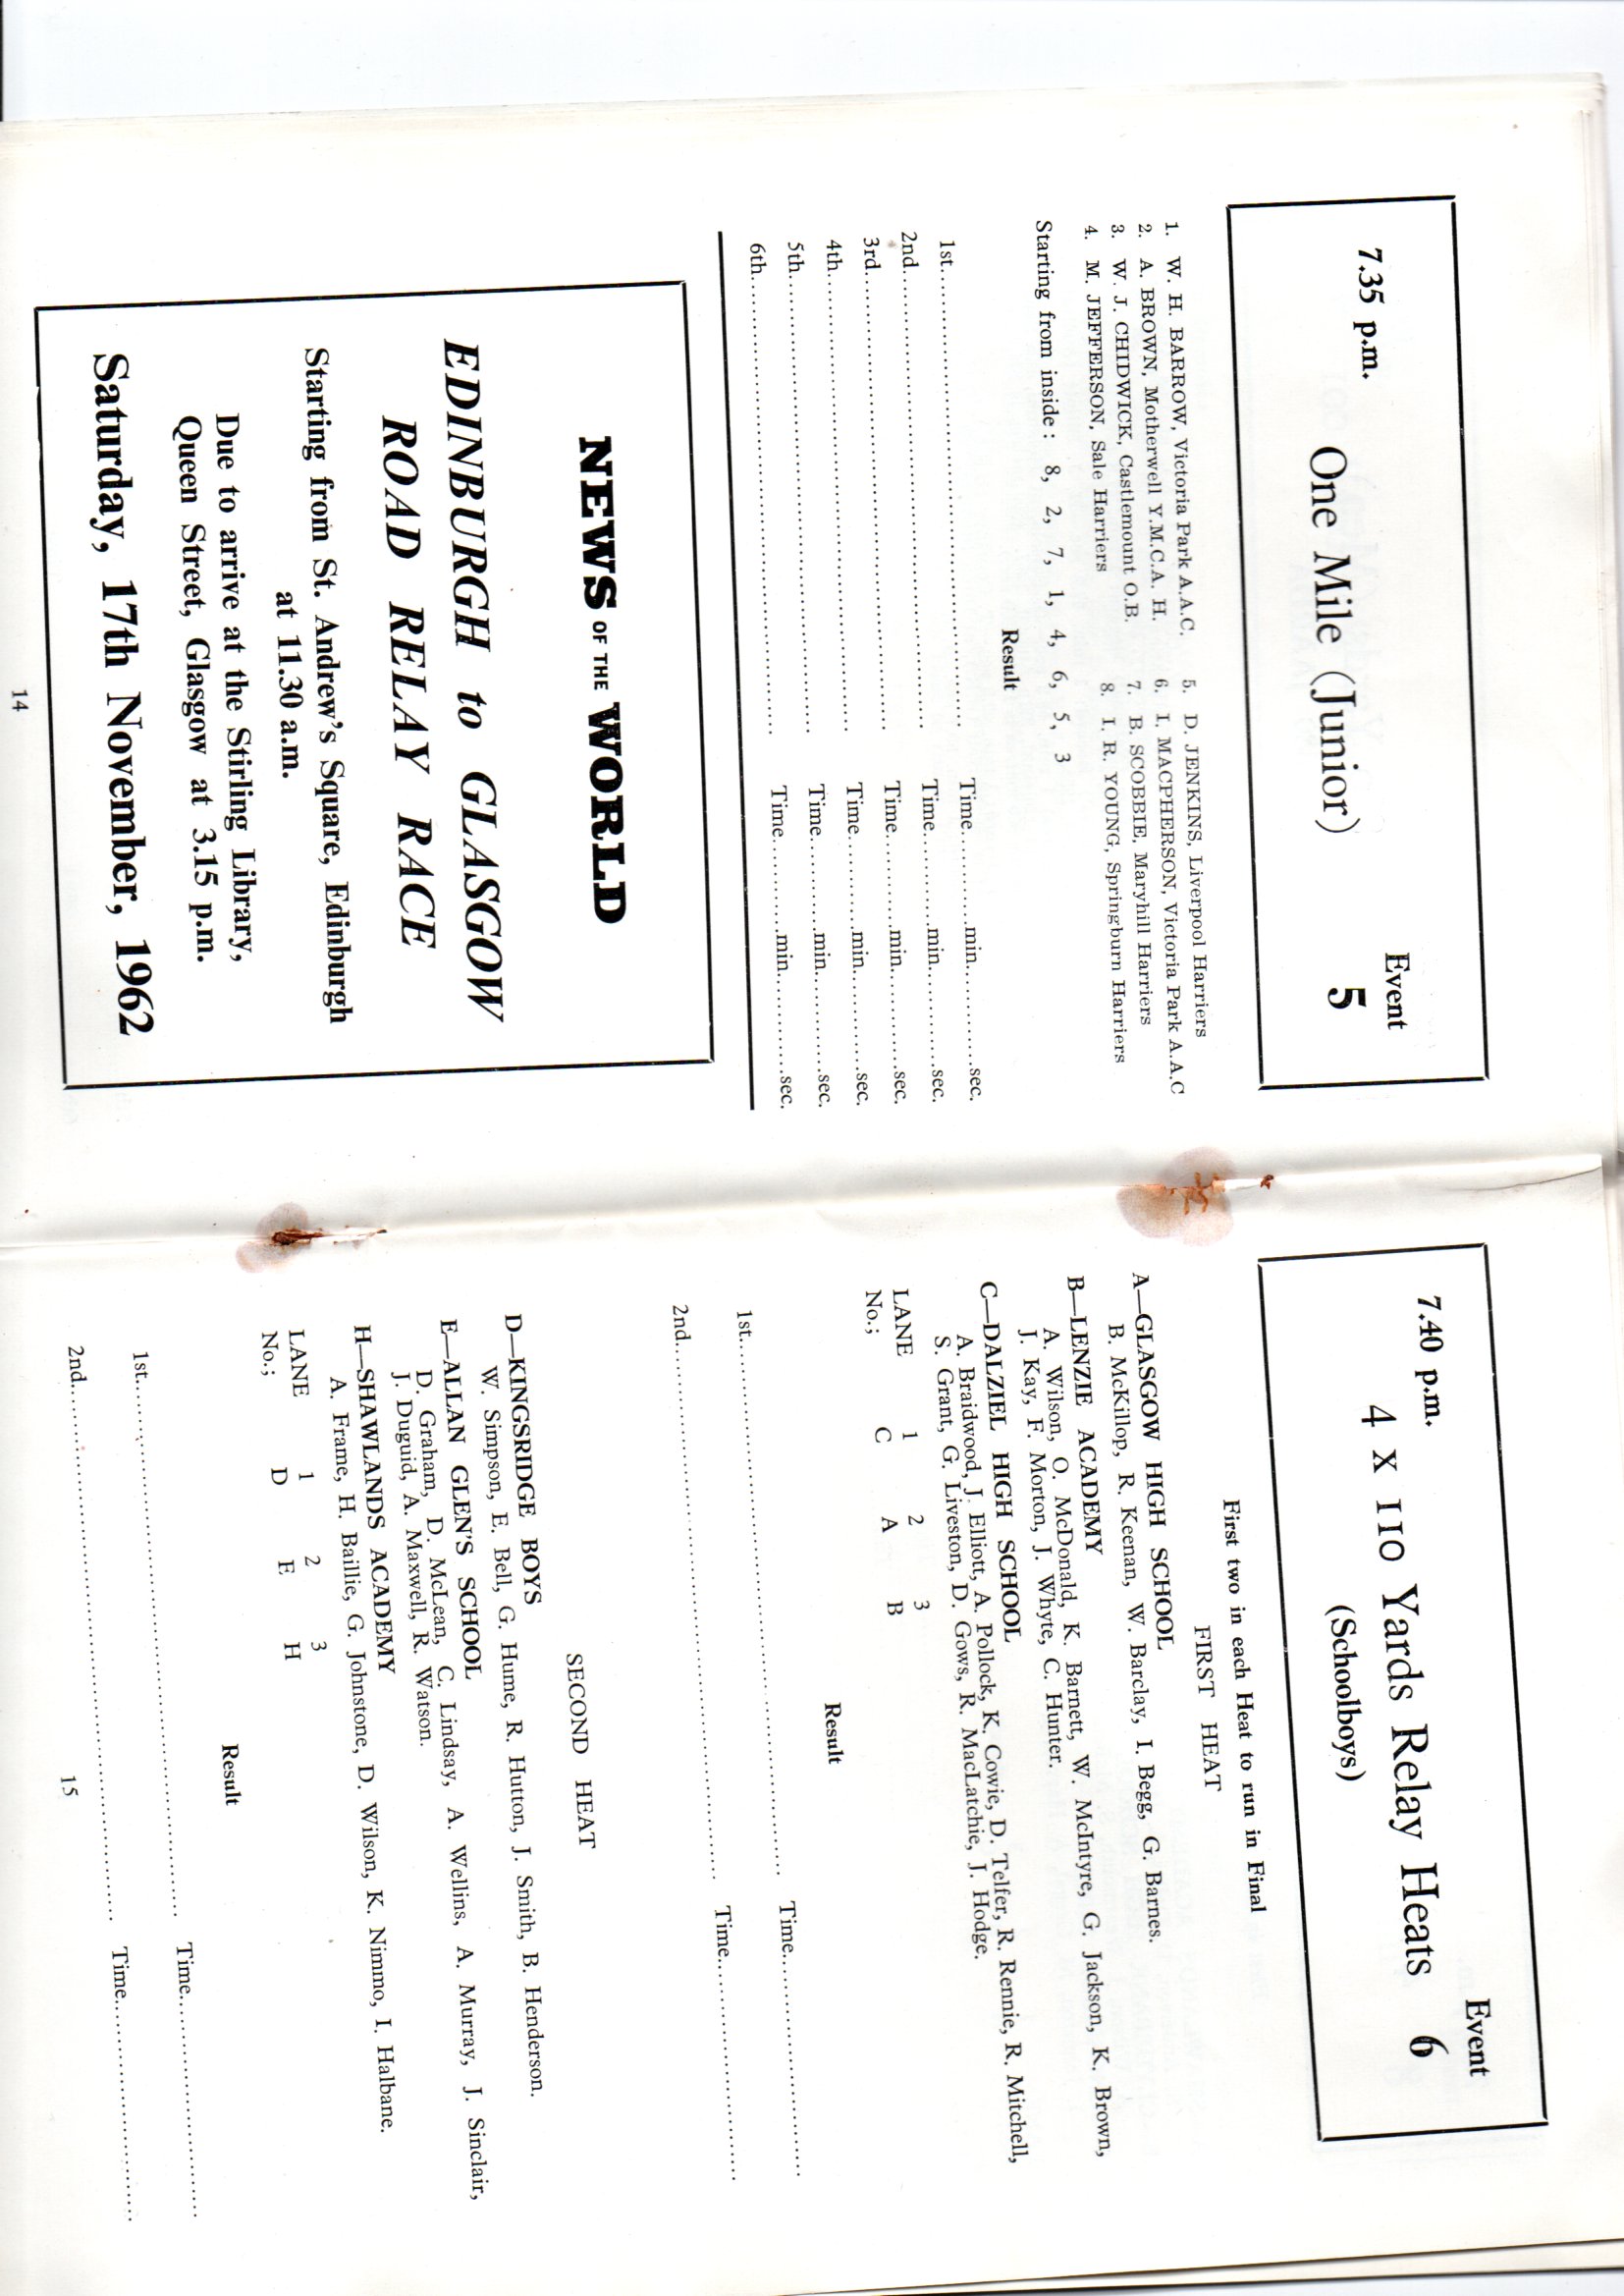 7.35 p.m.
Event
One Mile (Junior)
5
1. W. H. BARROW, Victoria Park A.A.C.
2. A. BROWN, Motherwell Y.M.C.A. H.
3. W. J. CHIDWICK, Castlemount O.B.
4. M. JEFFERSON, Sale Harriers
5. D. JENKINS, Liverpool Harriers
6. I. MACPHERSON, Victoria Park A.A.C
7. B. SCOBBIE, Maryhill Harriers
8. I. R. YOUNG, Springburn Harriers
Starting from inside : 8, 2, 7, 1, 4, 6, 5, 3
Result
1st.......... Time..........min..........sec.
2nd.......... Time..........min..........sec.
3rd.......... Time..........min..........sec.
4th.......... Time..........min..........sec.
5th.......... Time..........min..........sec.
6th.......... Time..........min..........sec.
NEWS OF THE WORLD
EDINBURGH to GLASGOW
ROAD RELAY RACE
Starting from St. Andrew's Square, Edinburgh
at 11.30 a.m.
Due to arrive at the Stirling Library,
Queen Street, Glasgow at 3.15 p.m.
Saturday, 17th November, 1962
14
7.40 p.m.
Event
4 x 110 Yards Relay Heats 6
(Schoolboys)
First two in each Heat to run in Final
FIRST HEAT
A—GLASGOW HIGH SCHOOL
B. McKillop, R. Keenan, W. Barclay, I. Begg, G. Barnes.
B—LENZIE ACADEMY
A. Wilson, O. McDonald, K. Barnett, W. McIntyre, G. Jackson, K. Brown,
J. Kay, F. Morton, J. Whyte, C. Hunter.
C—DALZIEL HIGH SCHOOL
A. Braidwood, J. Elliott, A. Pollock, K. Cowie, D. Telfer, R. Rennie, R. Mitchell,
S. Grant, G. Liveston, D. Gows, R. MacLatchie, J. Hodge.
LANE 1 2 3
No.; C A B
Result
1st.......... Time..........
2nd.......... Time..........
SECOND HEAT
D—KINGSRIDGE BOYS
W. Simpson, E. Bell, G. Hume, R. Hutton, J. Smith, B. Henderson.
E—ALLAN GLEN'S SCHOOL
D. Graham, D. McLean, C. Lindsay, A. Wellins, A. Murray, J. Sinclair,
J. Duguid, A. Maxwell, R. Watson.
H—SHAWLANDS ACADEMY
A. Frame, H. Baillie, G. Johnstone, D. Wilson, K. Nimmo, I. Halbane.
LANE 1 2 3
No.; D E H
Result
1st.......... Time..........
2nd.......... Time..........
15